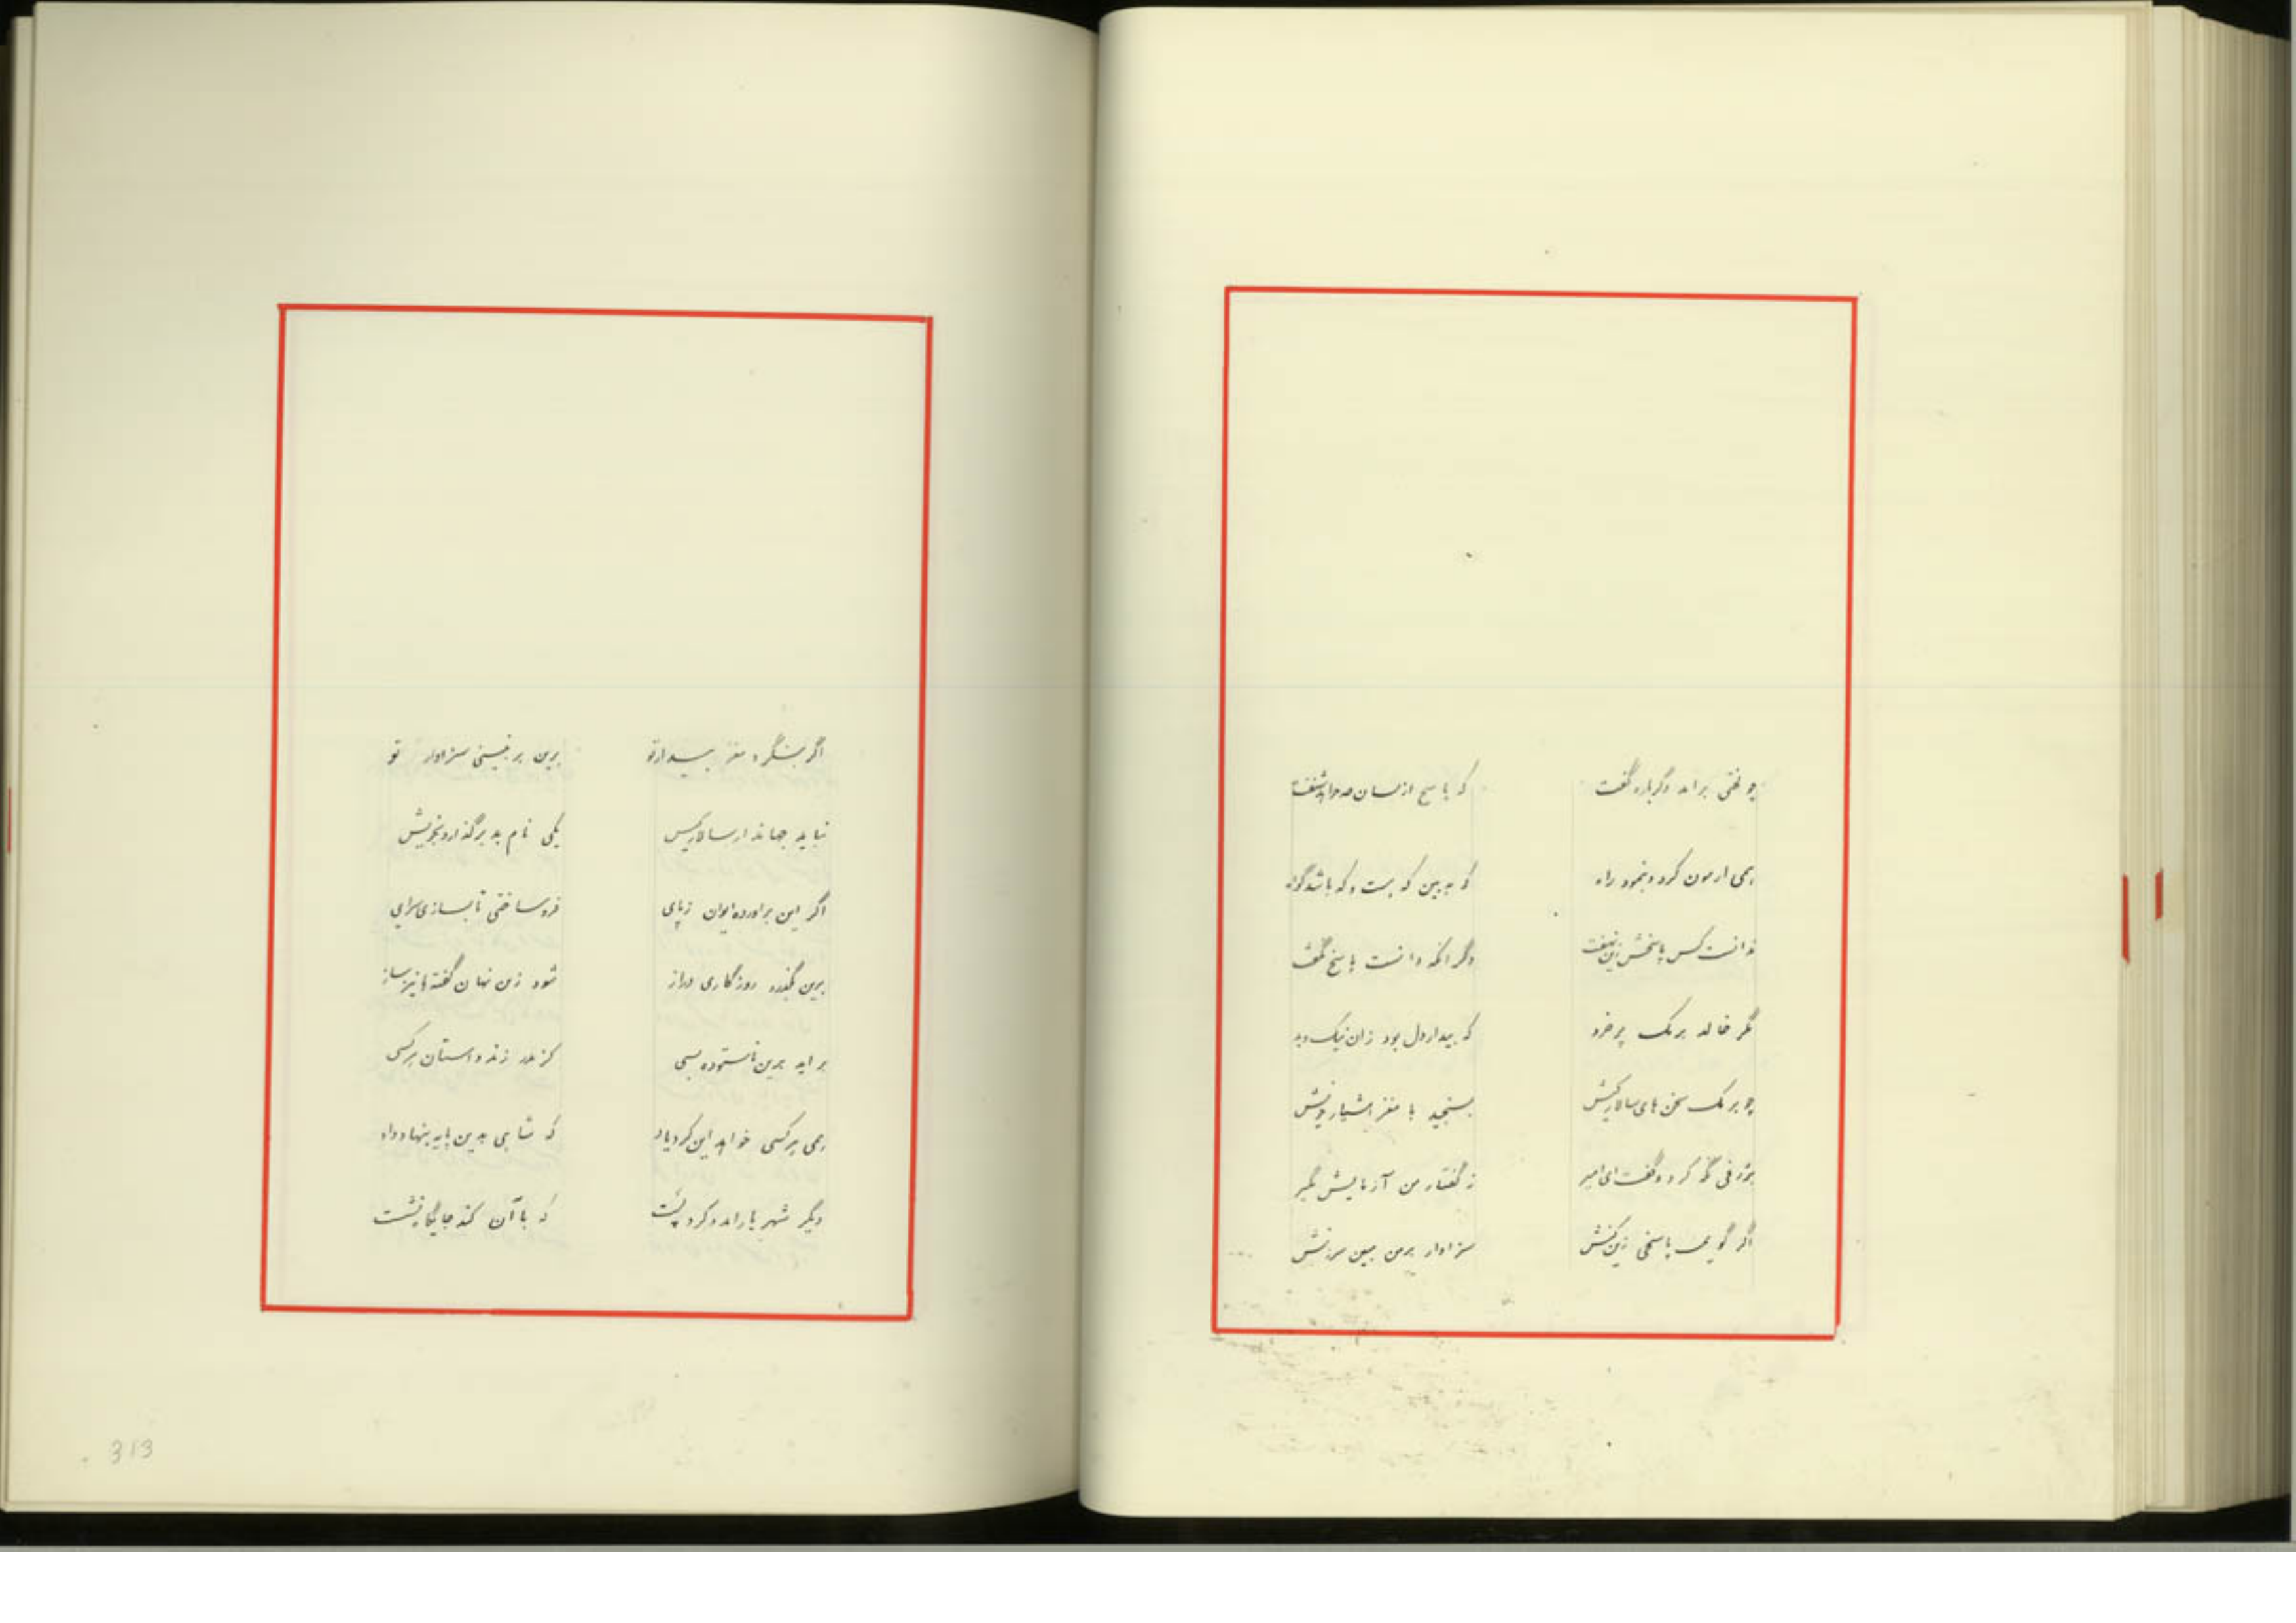 چو لختی براند دگرباره گفت که پاسخ
همی ازمون کرد و بنمود راه که به بین که
ندانست کس پاسخش زین نهفت دگر انکه دانست پاسخ نگفت
مگر خالد برمک پر خرد که بیدار دل بود زان نیک و بد
چو برمک سخن های سالار کیش بسنجید با مغز هشیار خویش
بژرفی نگه کرد و گفت ای امیر ز گفتار من آزمایش مگیر
اگر گویمت پاسخی زین کنش سزاوار برمن مبین سرزنش
اگر بنگرد مغز بیدار تو برین بر نبینی سزاوار تو
نباید جهاندار سالار کیش یکی نام بد برگذارد بخویش
اگر این براورده ایوان ز پای فرو ساختی تا بسازی سرای
برین بگذرد روزگاری دراز شود زین نهان گفته ها نیز ساز
براید برین ناستوده بسی کزو زند داستان هر کسی
همی هر کسی خواهد این کرد یاد که شاهی بدین پایه بنهاد و داد
دیگر شهریار اند و کرد پست که با آن کند جایگاه نشست
313